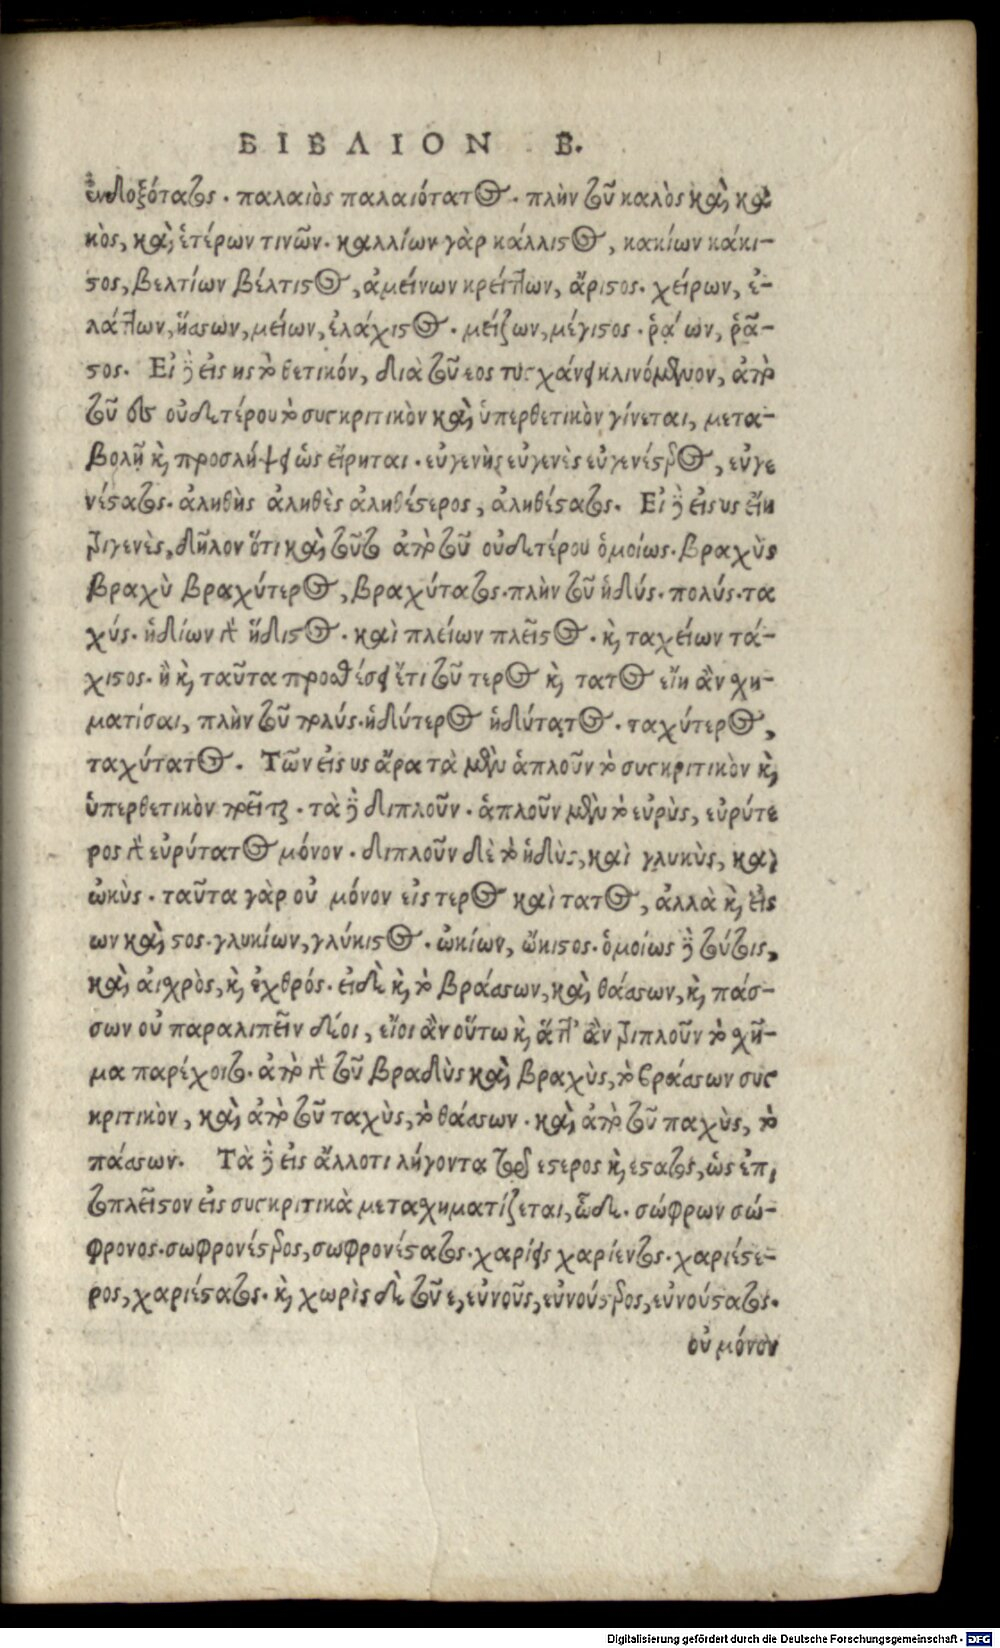 ΒΙΒΛΙΟΝ Β.
ἐνδοξότατος. παλαιὸς παλαιότατος. πλὴν τοῦ καλὸς καὶ κα
κὸς, καὶ ἑτέρων τινῶν. καλλίων γὰρ κάλλιστος, κακίων κάκι-
στος, βελτίων βέλτιστος, ἀμείνων κρείττων, ἄριστος. χείρων, ἐ-
λάττων, ἥσσων, μείων, ἐλάχιστος. μείζων, μέγιστος. ῥᾴων, ῥᾷ-
στος. Εἰ δὲ εἰς ης τὸ θετικόν, διὰ τοῦ εος τυγχάνει κλινόμενον, ἀπὸ
τοῦ δε οὐδετέρου τὸ συγκριτικὸν καὶ ὑπερθετικὸν γίνεται, μετα-
βολῇ καὶ προσλήψει ὡς εἴρηται. εὐγενὴς εὐγενὲς εὐγενέστερος, εὐγε
νέστατος. ἀληθὴς ἀληθὲς ἀληθέστερος, ἀληθέστατος. Εἰ δὲ εἰς υς εἴη
τριγενὲς, δῆλον ὅτι καὶ τοῦτο ἀπὸ τοῦ οὐδετέρου ὁμοίως. βραχὺς
βραχὺ βραχύτερος, βραχύτατος. πλὴν τοῦ ἡδύς. πολύς. τα
χύς. ἡδίων γὰρ ἥδιστος. καὶ πλείων πλεῖστος. καὶ ταχείων τά-
χιστος. ἢ καὶ ταῦτα προσθέσει ἔτι τοῦ τερος καὶ τατος εἴη ἂν σχη-
ματίσαι, πλὴν τοῦ πολύς. ἡδύτερος ἡδύτατος. ταχύτερος,
ταχύτατος. Τῶν εἰς υς ἄρα τὰ μὲν ἁπλοῦν τὸ συγκριτικὸν καὶ
ὑπερθετικὸν ποιεῖται. τὰ δὲ διπλοῦν. ἁπλοῦν μὲν τὸ εὐρὺς, εὐρύτε
ρος γὰρ εὐρύτατος μόνον. διπλοῦν δὲ τὸ ἡδὺς, καὶ γλυκὺς, καὶ
ὠκὺς. ταῦτα γὰρ οὐ μόνον εἰς τερος καὶ τατος, ἀλλὰ καὶ εἰς
ων καὶ στος. γλυκίων, γλύκιστος. ὠκίων, ὤκιστος. ὁμοίως δὲ τούτοις,
καὶ αἰσχρὸς, καὶ ἐχθρός. εἰ δὲ καὶ τὸ βράσσων, καὶ θάσσων, καὶ πάσ-
σων οὐ παραλιπεῖν δέοι, εἴοι ἂν οὕτω καὶ ἅττ' ἂν τριπλοῦν τὸ σχῆ-
μα παρέχοιτο. ἀπὸ γὰρ τοῦ βραδὺς καὶ βραχὺς, τὸ βράσσων συγ
κριτικὸν, καὶ ἀπὸ τοῦ ταχὺς, τὸ θάσσων. καὶ ἀπὸ τοῦ παχὺς, τὸ
πάσσων. Τὰ δὲ εἰς ἄλλο τι λήγοντα διὰ τοῦ εστερος καὶ εστατος, ὡς ἐπὶ
τοπλεῖστον εἰς συγκριτικὰ μετασχηματίζεται, ὧδε. σώφρων σώ-
φρονος. σωφρονέστερος, σωφρονέστατος. χαρίεις χαρίεντος. χαριέστε-
ρος, χαριέστατος. καὶ χωρὶς δὲ τοῦ ε, εὐνοῦς, εὐνούστερος, εὐνούστατος.
οὐ μόνον
Digitalisierung gefördert durch die Deutsche Forschungsgemeinschaft - DFG